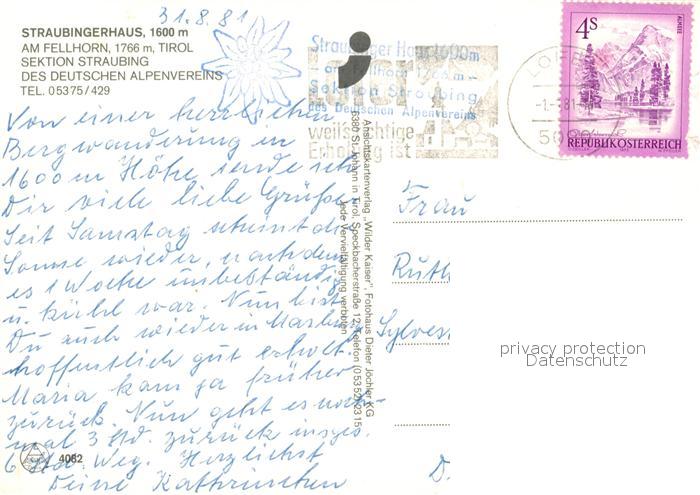 31.8.81
STRAUBINGERHAUS, 1600 m
AM FELLHORN, 1766 m, TIROL
SEKTION STRAUBING
DES DEUTSCHEN ALPENVEREINS
TEL. 05375/429
Straubinger Haus 1600m
am Fellhorn 1766 m -
Sektion Straubing
des Deutschen Alpenvereins
weil
richtige
Erholung ist
LOFER
4S
ALMSEE
REPUBLIK ÖSTERREICH
Von einer herrlichen
Bergwanderung in
1600 m Höhe sende ich
Dir viele liebe Grüße.
Seit Samstag scheint die
Sonne wieder, nachdem
es 1 Woche unbeständig
u. kühl war. Nun bist
Du auch wieder in
hoffentlich gut erholt.
Maria kam ja früher
zurück. Nun geht es noch-
mal 3 Std. zurück insges.
6 Std. Weg. Herzlichst
Deine Kathrinchen
4082
Ansichtskartenverlag „Wilder Kaiser", Fotohaus Dieter Jöchler KG
6380 St. Johann in Tirol, Speckbacherstraße 12, Telefon (05352) 2315
Jede Vervielfältigung verboten
Frau
Ruth
Sylves
D.
privacy protection
Datenschutz